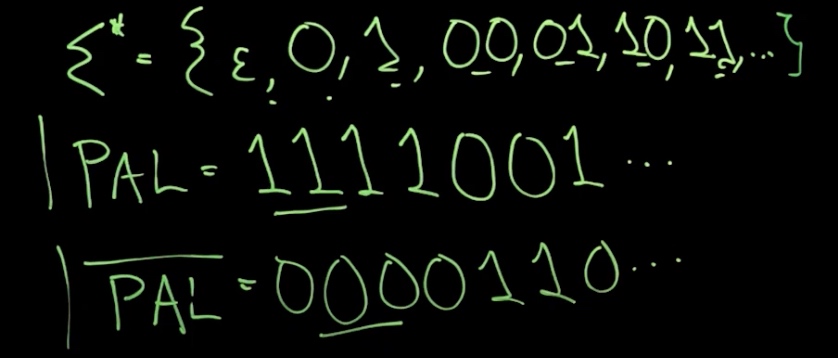 Σ* = {ε, 0, 1, 00, 01, 10, 11, ...}
PAL = 1111001 ...
P̅A̅L̅ = 0000110 ...